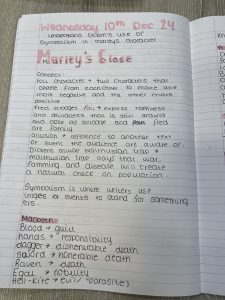 Wednesday 10th Dec 24
Understand Dicken's use of
Symbolism in Marley's character
Marley's
Connect:
Foil character → two characters that
oppose from eachother to make one
more negative and the other more
positive
Fred scrooges foil → express happiness
and kindness that is still around
and close as scrooge and Fred
are family
allusion → reference to another text
or event the audience are aware of.
Dickens allude Malthusian trap →
Malthusian trap says that war,
Famming and disease will create
a natural check on population
Symbolism is where writers use
images or events to stand for something
els
Macbeth:
Blood → guilt
hands → responsibility
dagger → dishonerable death
sword → honerable death
Raven → death
Egal → notuity
Hell-kite → evil/ (parasite)